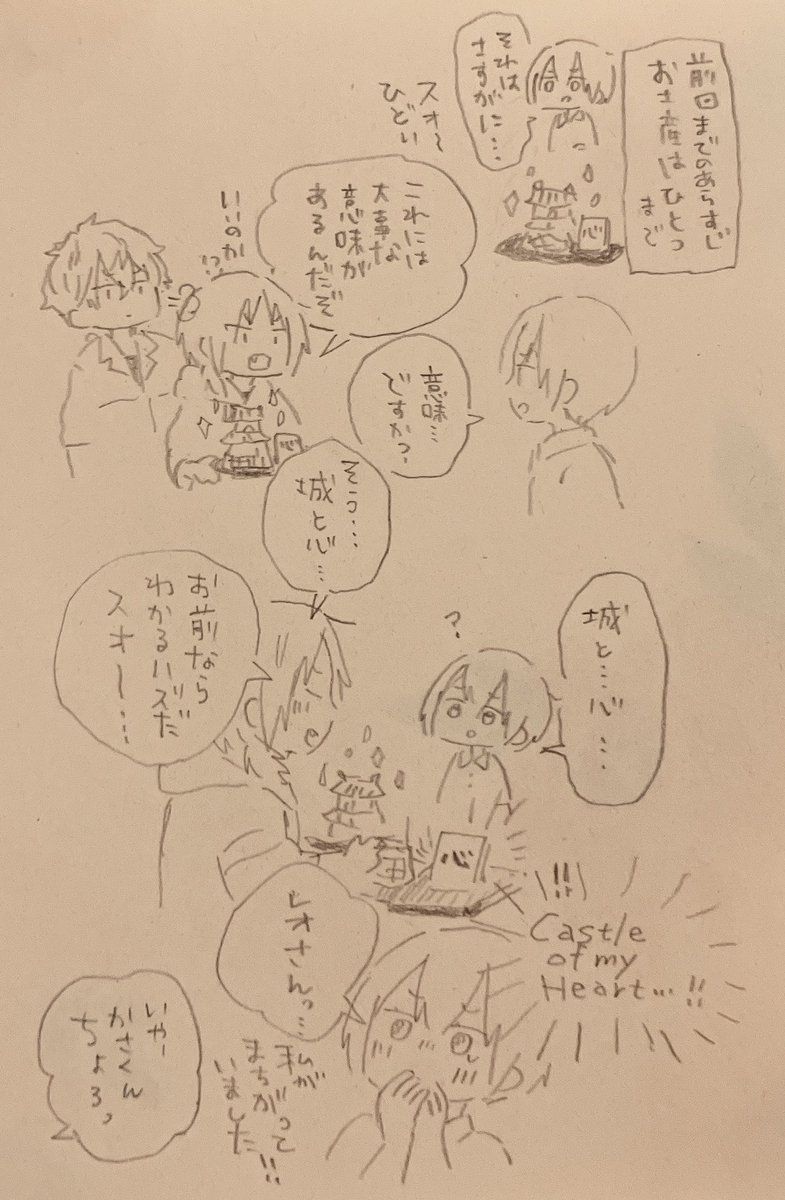 前回までのあらすじ
お土産はひとつ
まで
それは
さすがに…
心
スオ〜
ひどい
これには
大事な
意味が
あるんだぞ
いいのか
心
意味…
ですか?
そう…
城と心…
お前なら
わかるハズだ
スオ〜…
城と…心…
?
心
!!
Castle
of my
Heart…!!
レオさんっ…
私が
まちがって
いました!!
いやー
かさくん
ちょろっ